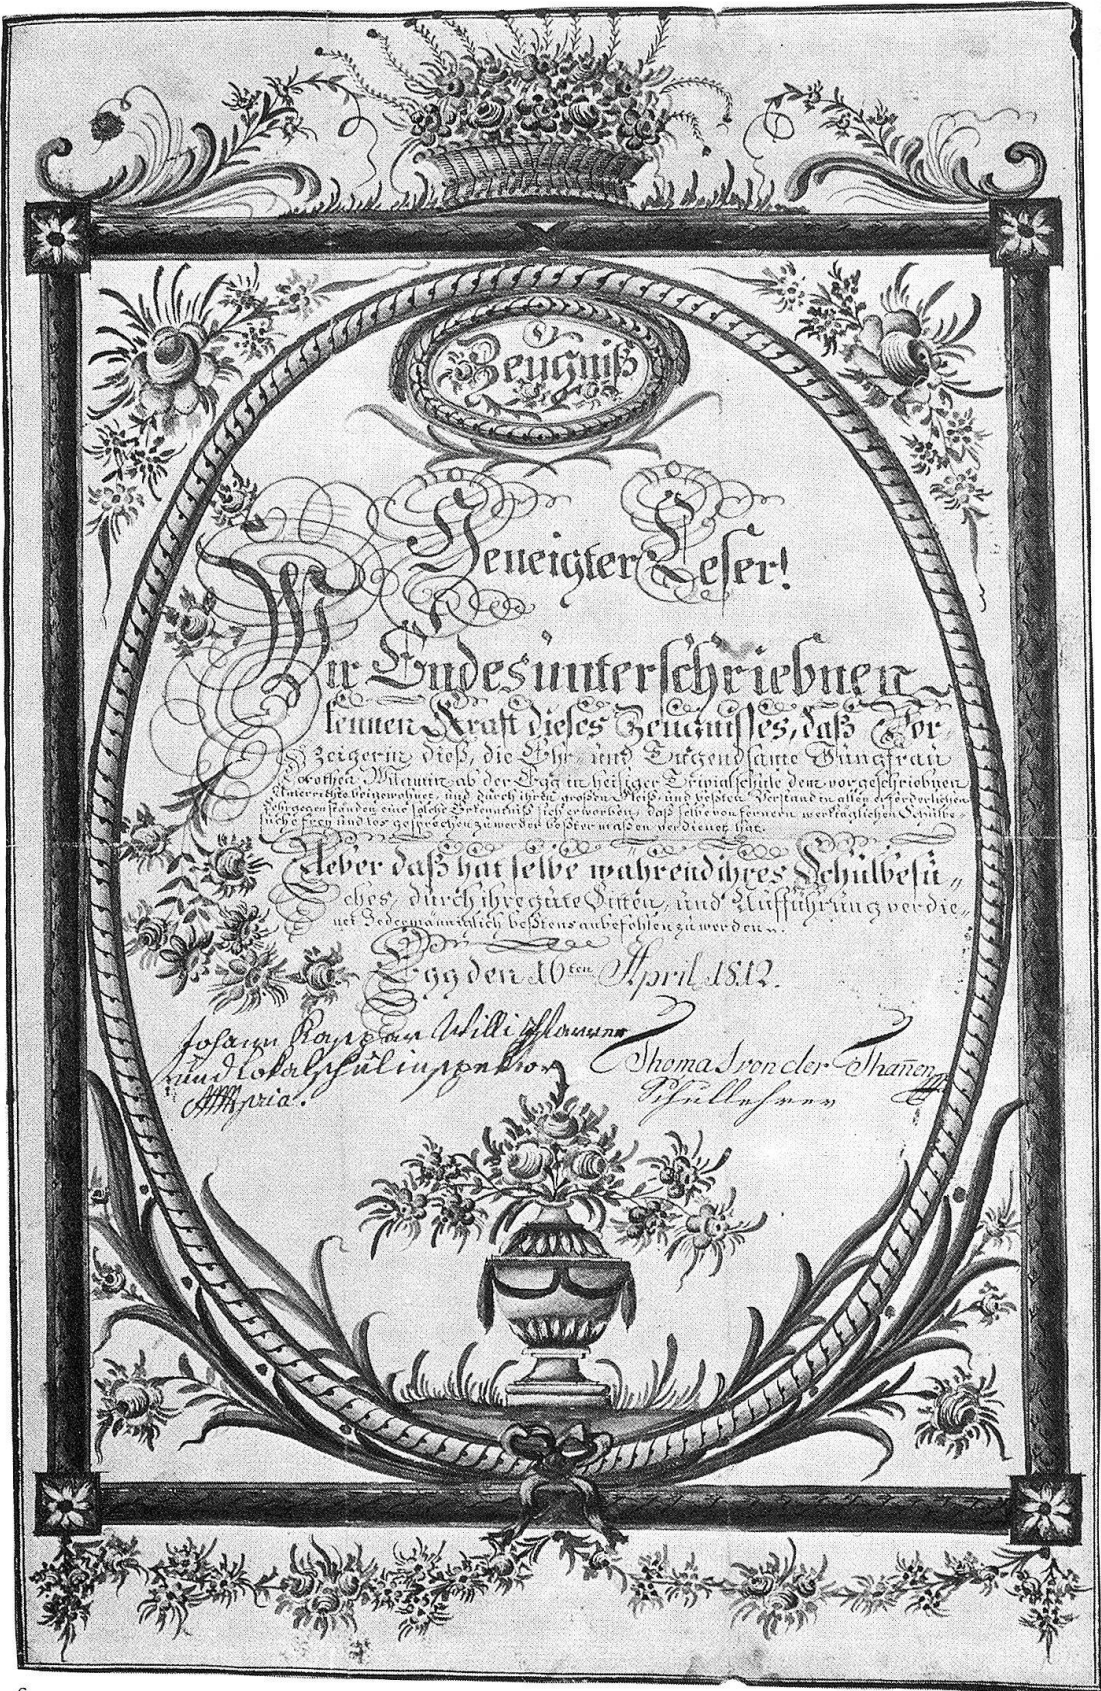 Zeugniß
Geneigter Leser!
Wir Endesünterschriebnen
kennen Kraft dieses Zeugnisses, daß Vor-
zeigerin dieß, die Ehr- und Tugendsame Jungfrau
Dorothea ab der Egg in heiliger Trivialschule dem vorgeschriebnen
Unterrichte beigewohnet und durch ihren großen Fleiß und beßten Verstand in allen erforderlichen
Lehrgegenständen eine solche sich erworben, daß selbe von fernern werktäglichen Schulbe-
suche frey und los gesprochen zu werden beßter maßen verdienet hat.
Ueber daß hat selbe wahrend ihres Schülbesü-
ches, dürch ihre güte Sitten, und Aufführung verdie-
net Jedermänniglich beßtens anbefohlen zu werden.
Egg den 16ten April 1812.
Johann Kaspar Willi Pfarrer
und Lokalschülinspektor
mpria.
Thomas von der Thañen
Schullehrer